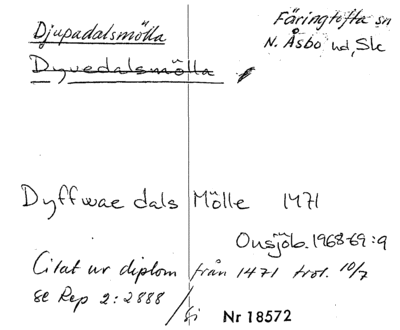 Djupadalsmölla
Färingtofta sn
N. Åsbo hd, Sk
Dyvedalsmölla
Dyffwae dals Mölle 1471
Onsjöb. 1968-69:9
Citat ur diplom från 1471 trol. 10/7
se Rep 2:2888 / Si
Nr 18572